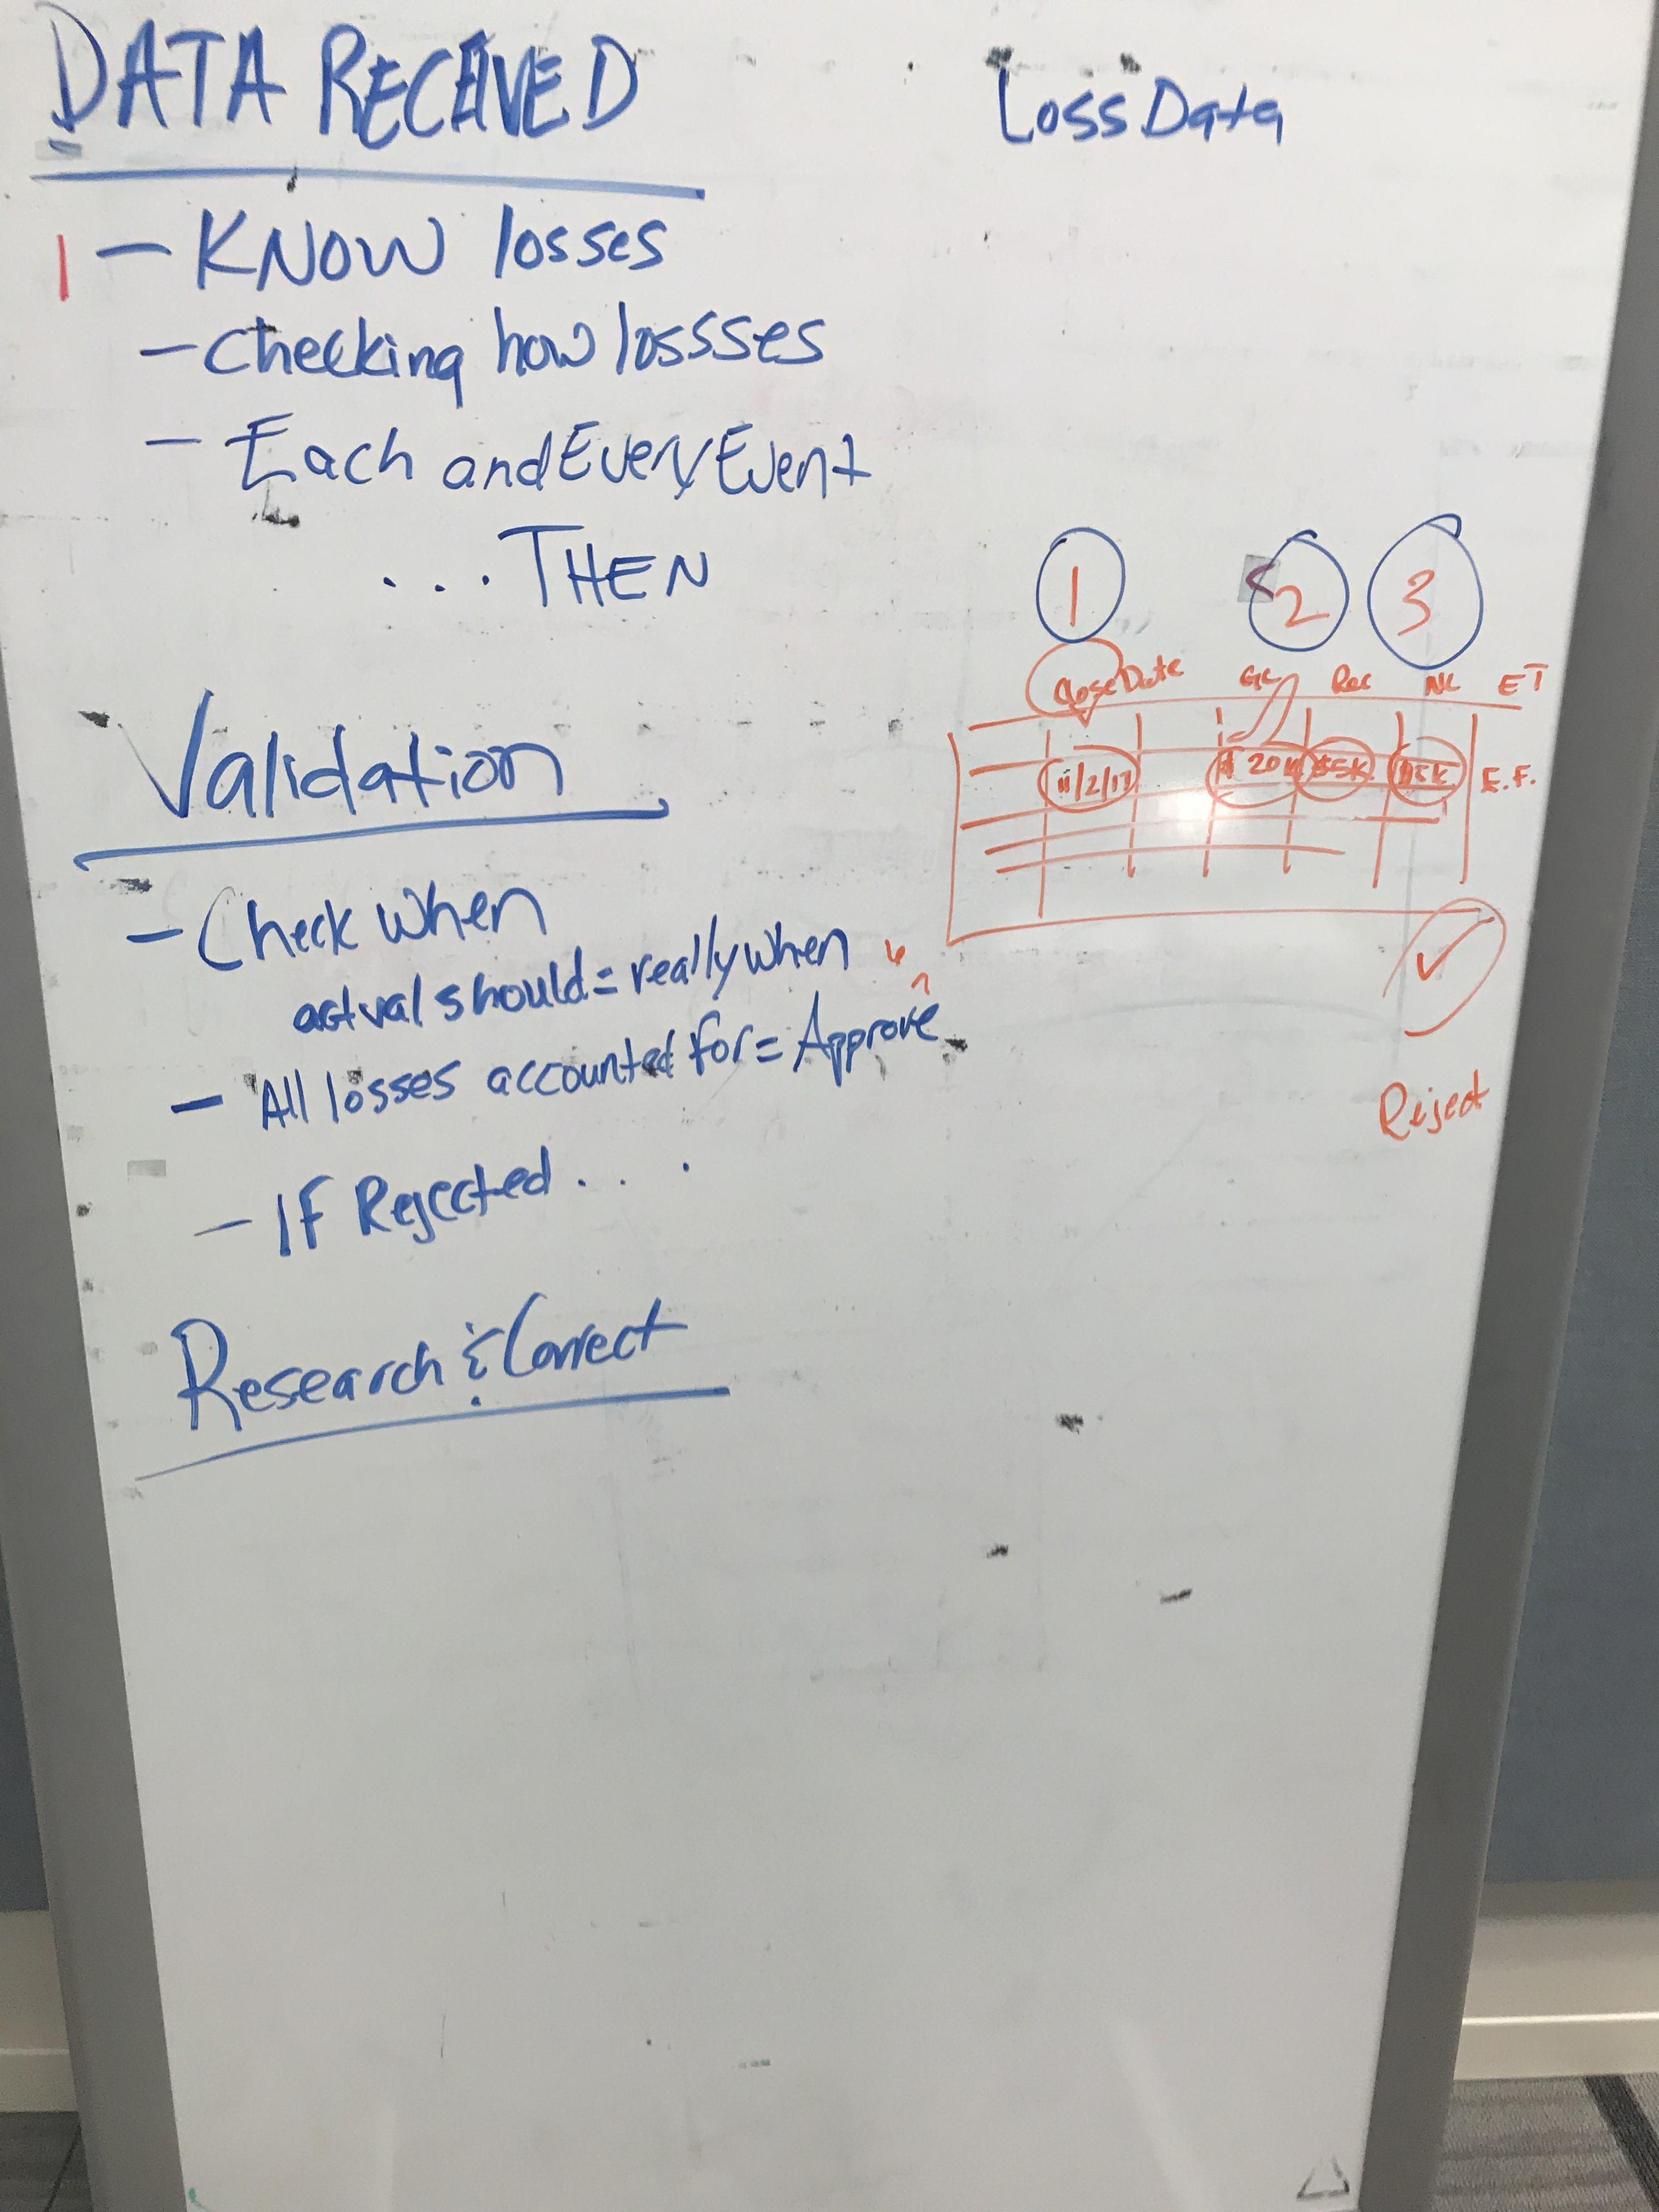 DATA RECEIVED
Loss Data
1 - KNOW losses
- Checking how lossses
- Each and Every Event
... THEN
1 2 3
Close Date GL Rec NL ET
11/2/17 $ 20K $5K $15K E.F.
Validation
- Check when
actual should = really when
- All losses accounted for = Approve
Reject
- IF Rejected . . .
Research & Correct